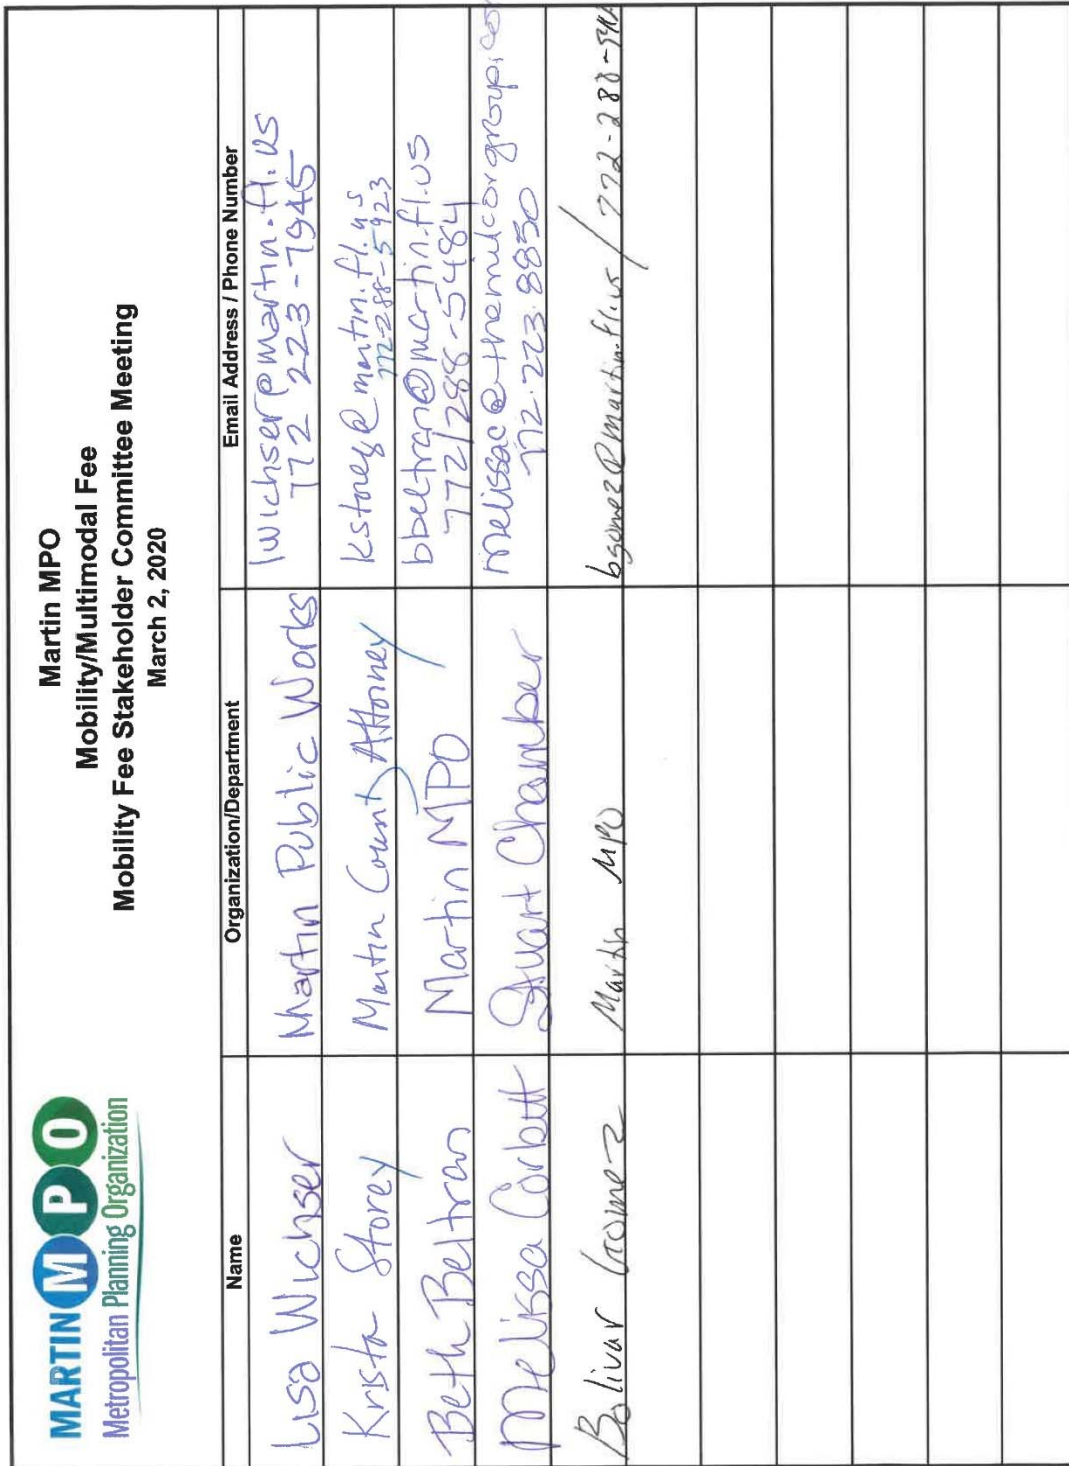 MARTIN MPO
Metropolitan Planning Organization
Martin MPO
Mobility/Multimodal Fee
Mobility Fee Stakeholder Committee Meeting
March 2, 2020
Name Organization/Department Email Address / Phone Number
Lisa Wichser Martin Public Works lwichser@martin.fl.us
772 223-7945
Krista Storey Martin County Attorney kstorey@martin.fl.us
772-288-5923
Beth Beltran Martin MPO bbeltran@martin.fl.us
772/288-5484
Melissa Corbett Stuart Chamber melissac@themilcorgroup.com
772.223.8850
Bolivar Gomez Martin MPO bgomez@martin.fl.us / 772-288-